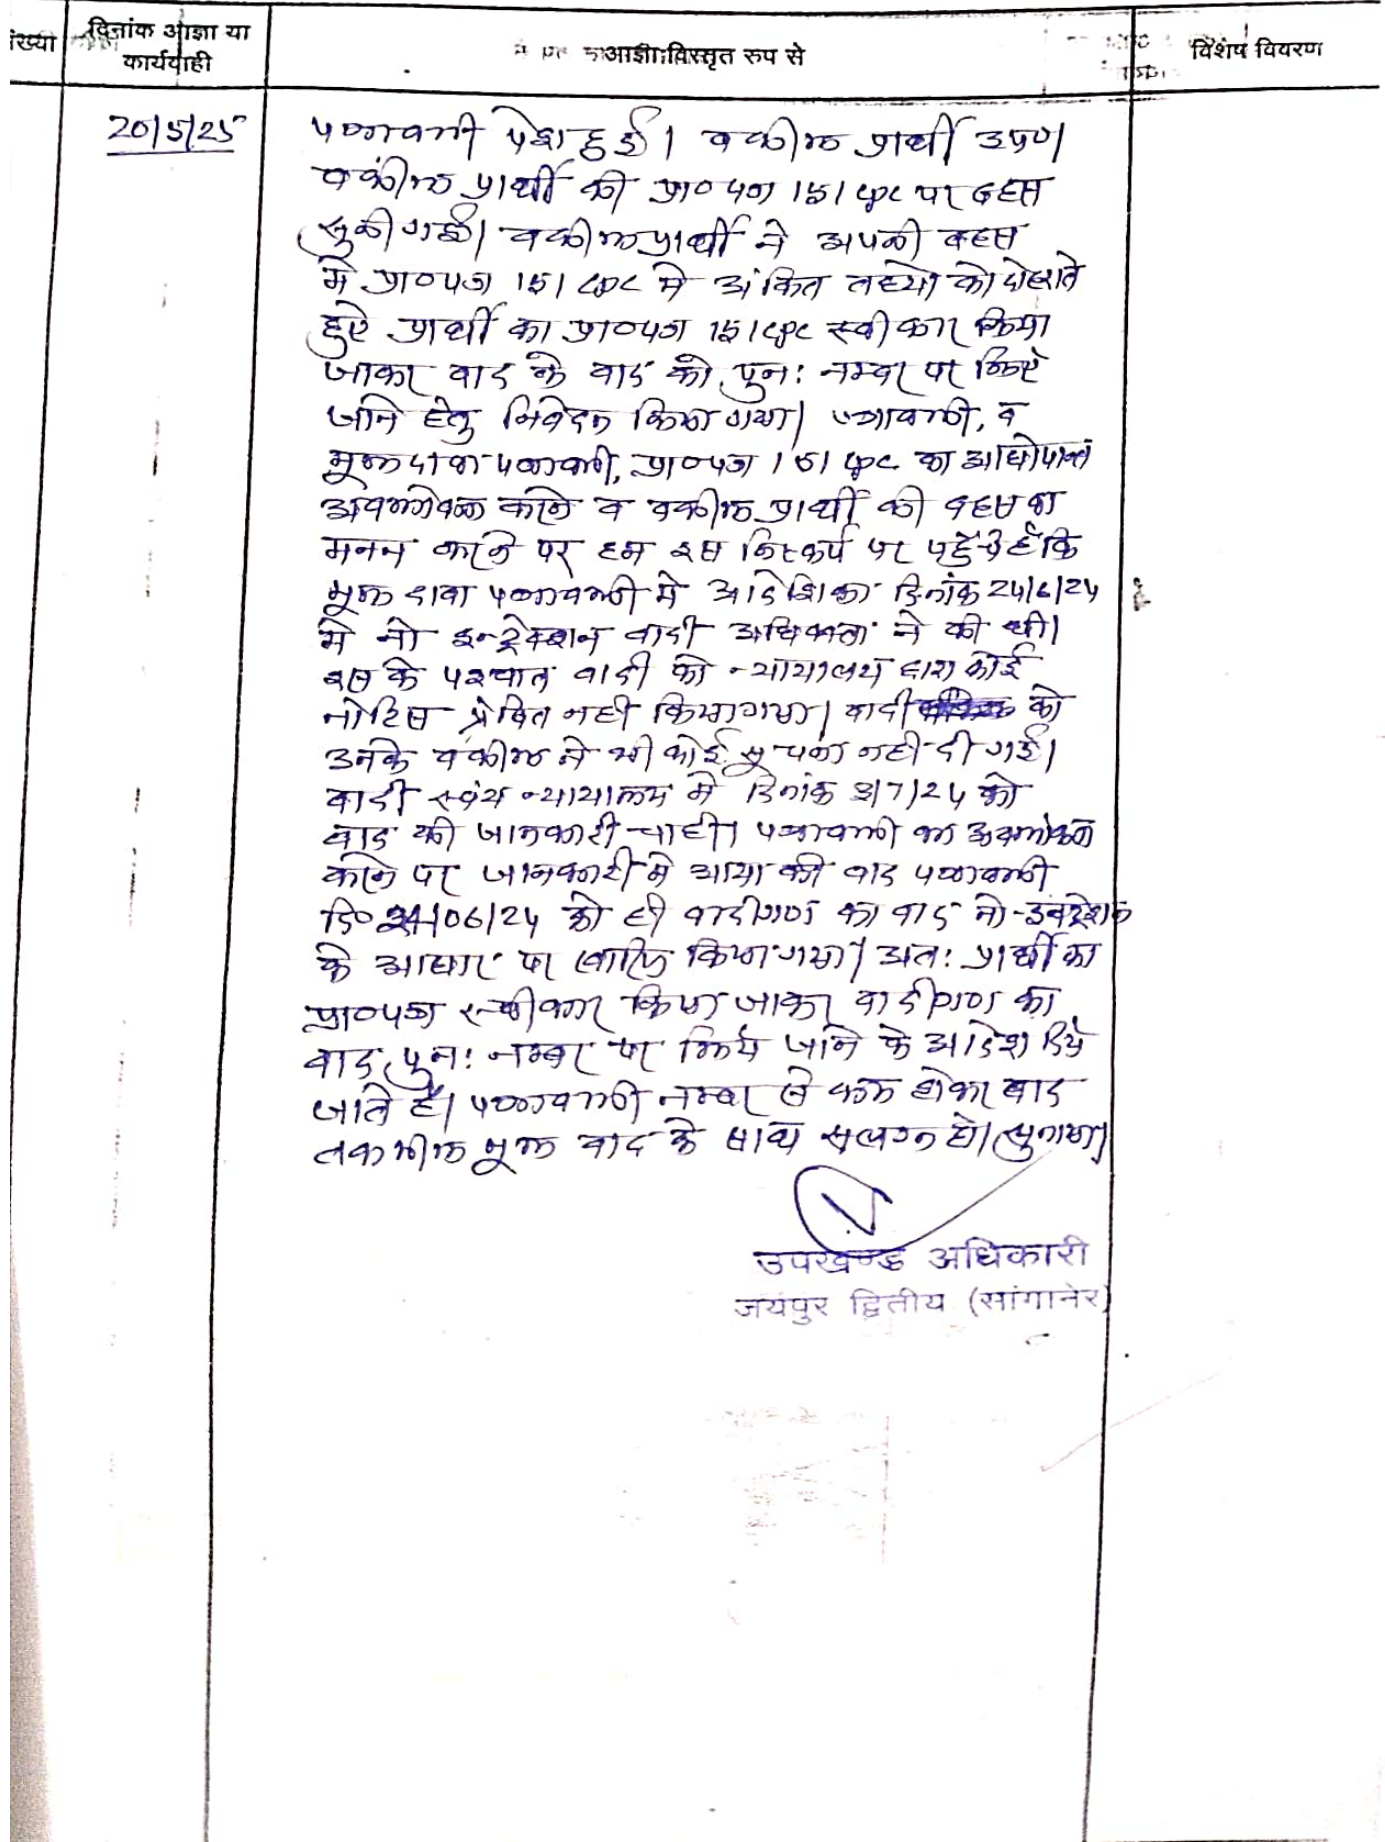 संख्या
दिनांक आज्ञा या
कार्यवाही
आज्ञा विस्तृत रुप से
विशेष विवरण
20/5/25
पत्रावली पेश हुई। वकील प्रार्थी उप०।
वकील प्रार्थी की प्रा०पत्र 151 CPC पर बहस
सुनी गई। वकील प्रार्थी ने अपनी बहस
मे प्रा०पत्र 151 CPC मे अंकित तथ्यो को दोहराते
हुऐ प्रार्थी का प्रा०पत्र 151 CPC स्वीकार किया
जाकर वाद के वाद को पुन: नम्बर पर लिऐ
जाने हेतु निवेदन किया गया। पत्रावली, व
मूल दावा पत्रावली, प्रा०पत्र 151 CPC का आधोपान्त
अवलोकन करने व वकील प्रार्थी की बहस का
मनन करने पर हम इस निष्कर्ष पर पहुँचे है कि
मूल दावा पत्रावली मे आदेशिका दिनांक 24/6/24
मे नो इन्ट्रेक्शन वादी अधिवक्ता ने की थी।
इस के पश्चात वादी को न्यायालय द्वारा कोई
नोटिस प्रेषित नही किया गया। वादी को
उनके वकील ने भी कोई सूचना नही दी गई।
वादी स्वंय न्यायालय मे दिनांक 3/7/24 को
वाद की जानकारी चाही। पत्रावली का अवलोकन
करने पर जानकारी मे आया की वाद पत्रावली
दि० 24/06/24 को ही वादीगण का वाद नो-इन्ट्रेक्शन
के आधार पर खारिज किया गया। अत: प्रार्थी का
प्रा०पत्र स्वीकार किया जाकर वादीगण का
वाद पुन: नम्बर पर लिये जाने के आदेश दिये
जाते है। पत्रावली नम्बर से कम होकर बाद
तकमील मूल वाद के साथ सलग्न हो। सुनाया।
उपखण्ड अधिकारी
जयपुर द्वितीय (सांगानेर)